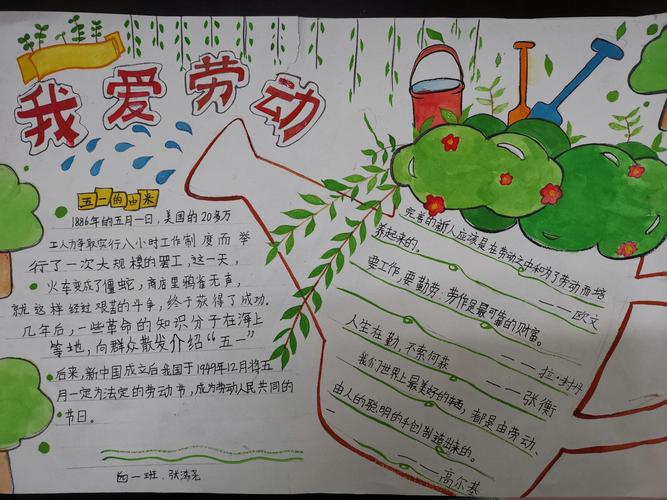 我爱劳动
五一的由来
1886年的五月一日,美国的20多万
工人为争取实行八小时工作制度而举
行了一次大规模的罢工,这一天,
火车变成了僵蛇,商店里鸦雀无声,
就这样经过艰苦的斗争,终于获得了成功。
几年后,一些革命的知识分子在海上
等地,向群众散发介绍“五一”
后来,新中国成立后我国于1949年12月将五
月一定为法定的劳动节,成为劳动人民共同的
节日。
四一班.张涛尧
完善的新人应该是在劳动之中和为了劳动而培
养起来的。
——欧文
要工作,要勤劳:劳作是最可靠的财富。
——拉·封丹
人生在勤,不索何获
——张衡
我们世界上最美好的东西,都是由劳动、
由人的聪明的手创制造出来的。
——高尔基